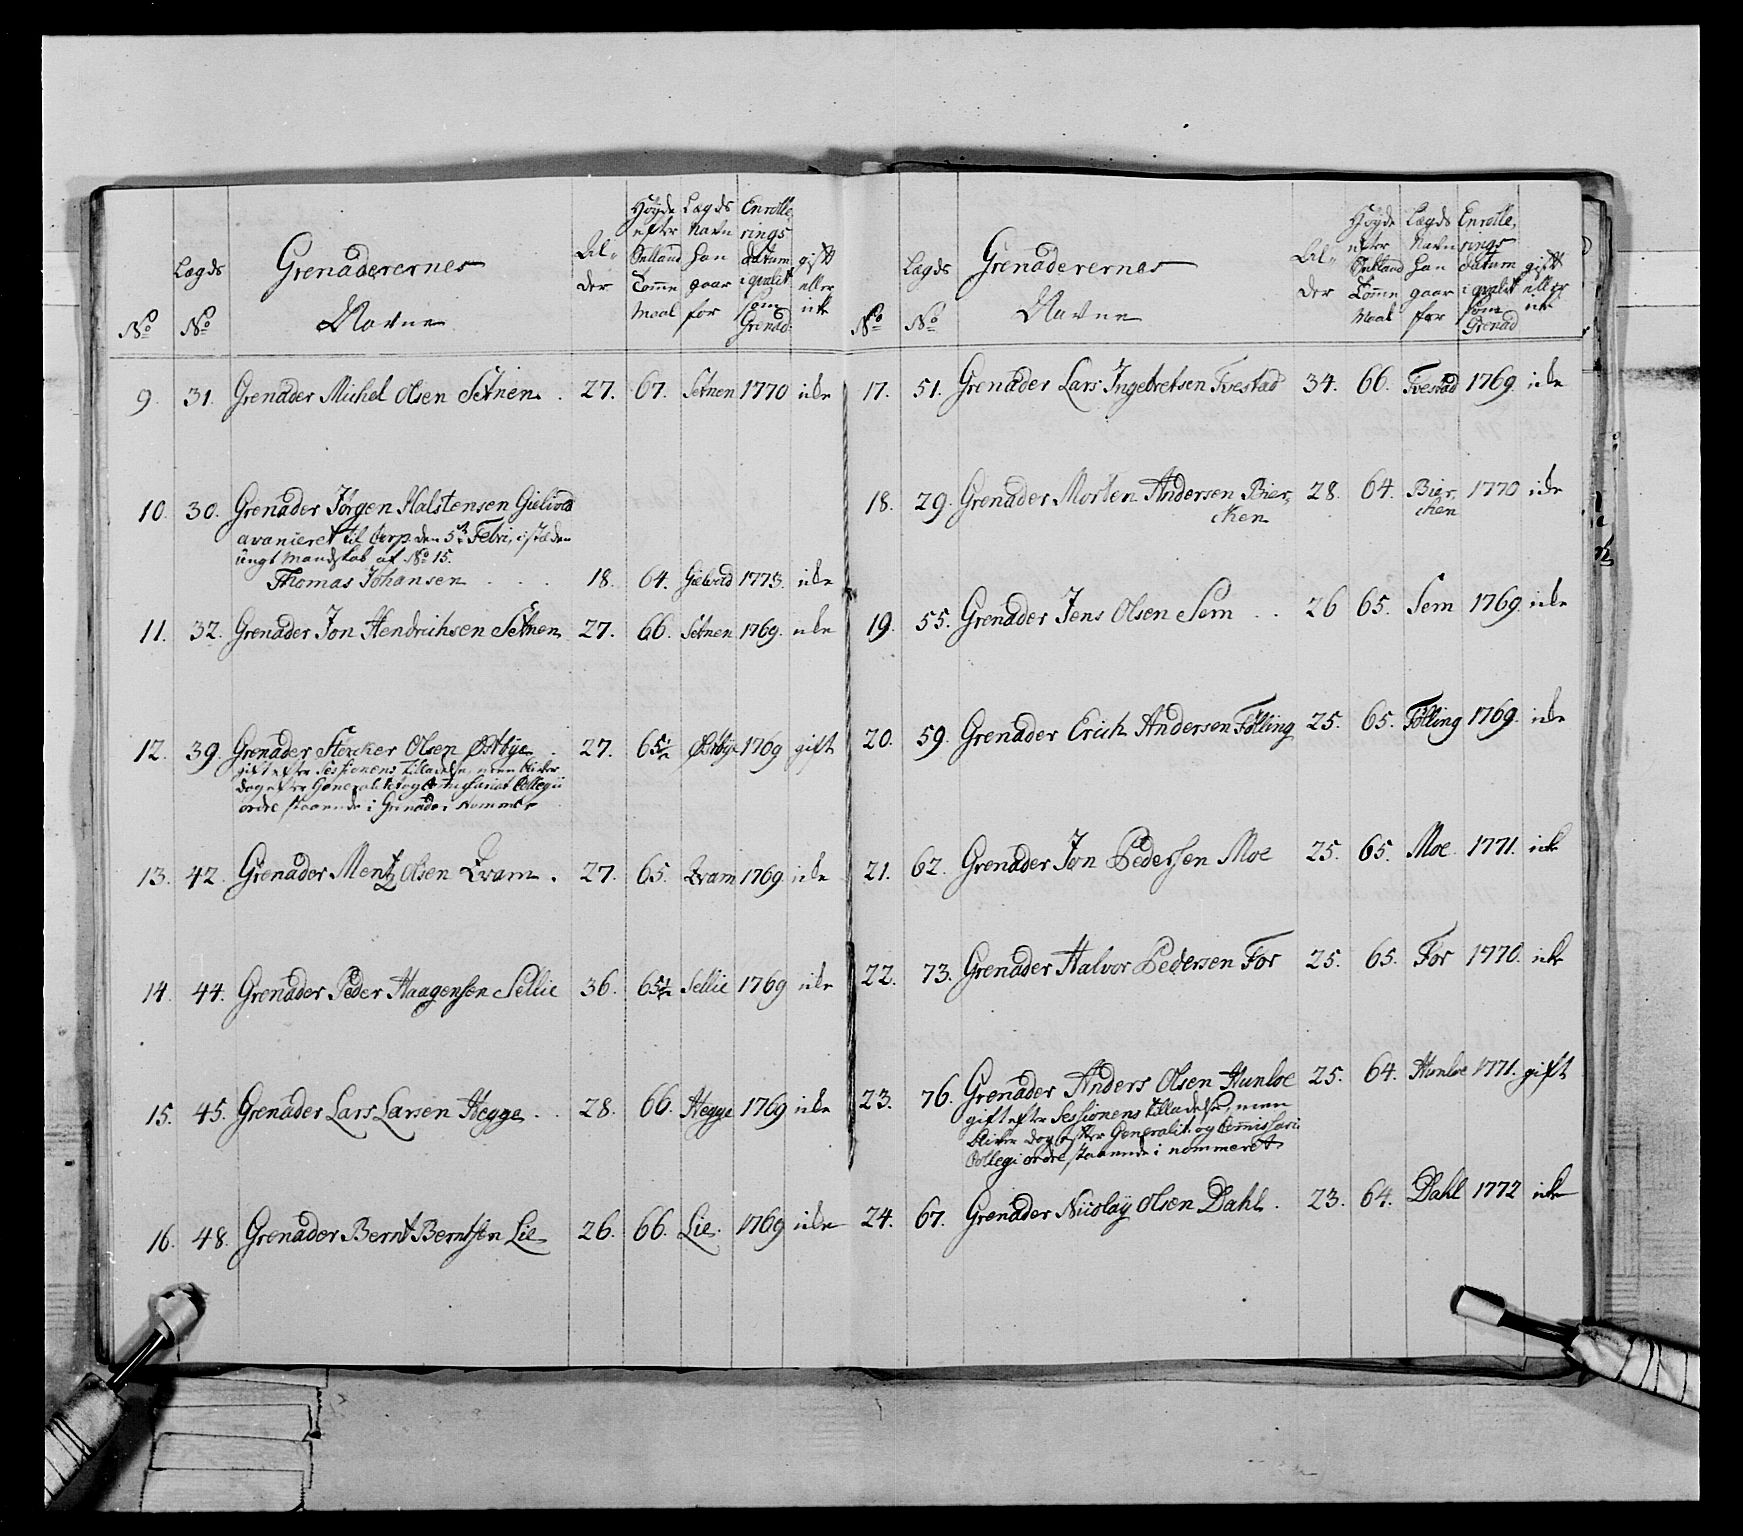 No
Lægds
No
Grenaderernes
Navne
Al-
der
Höyde
efter
Siælland
Tomme
Maal
Lægds
Navn
han
gaar
for
Enrolle-
rings
datum
i qvalit
som
Grenad.
gift
eller
ikke
9. 31. Grenader Michel Olsen Setnen. 27. 67. Setnen 1770 ikke
10. 30. Grenader Jörgen Halstensen Gielvold
avanieret til Corp. den 5te Febri, i stæden
ungt Mandskab af No 15.
Thomas Johansen . . . 18. 64. 1773. ikke
11. 32. Grenader Jon Hendrichsen Setnen 27. 66. Setnen 1769. ikke
12. 39. Grenader Stercker Olsen Østbye 27. 65½ Østbye 1769 gift
gift efter Sessionens tilladelse, men bliver
dog efter Generalitet og Comissariat Collegii
ordre staaende i Grenader Nommer
13. 42. Grenader Mentz Olsen Qvam. 27. 65. Qvam 1769 ikke
14. 44. Grenader Peder Haagensen Sellie 36. 65½ Sellie 1769 ikke
15. 45. Grenader Lars Larsen Hegge . . 28. 66. Hegge 1769 ikke
16. 48. Grenader Bernt Berntsen Lie 26. 66. Lie. 1769 ikke
No
Lægds
No
Grenaderernes
Navne
Al-
der
Höyde
efter
Siælland
Tomme
Maal
Lægds
Navn
han
gaar
for
Enrolle-
rings
datum
i qvalit
som
Grenad
gift
eller
ikke
17. 51. Grenader Lars Ingebretsen Tvestad 34. 66. Tvestad 1769. ikke
18. 29. Grenader Morten Andersen Bier- 28. 64. Bier- 1770 ikke
cken cken
19. 55. Grenader Jens Olsen Sem . . 26 65. Sem 1769. ikke
20. 59. Grenader Erich Andersen Fölling 25. 65. Fölling 1769. ikke
21. 62. Grenader Jon Pedersen Moe 25. 65. Moe 1771. ikke
22. 73. Grenader Halvor Pedersen For 25. 65. For 1770. ikke
23. 76. Grenader Anders Olsen Hunloe 25. 64. Hunloe 1771. gift
gift efter Sessionens tilladelse, men
bliver dog efter Generalit. og Comissari
Collegi ordre staaende i nommeret
24. 67. Grenader Nicolay Olsen Dahl. 23. 64. Dahl 1772 ikke